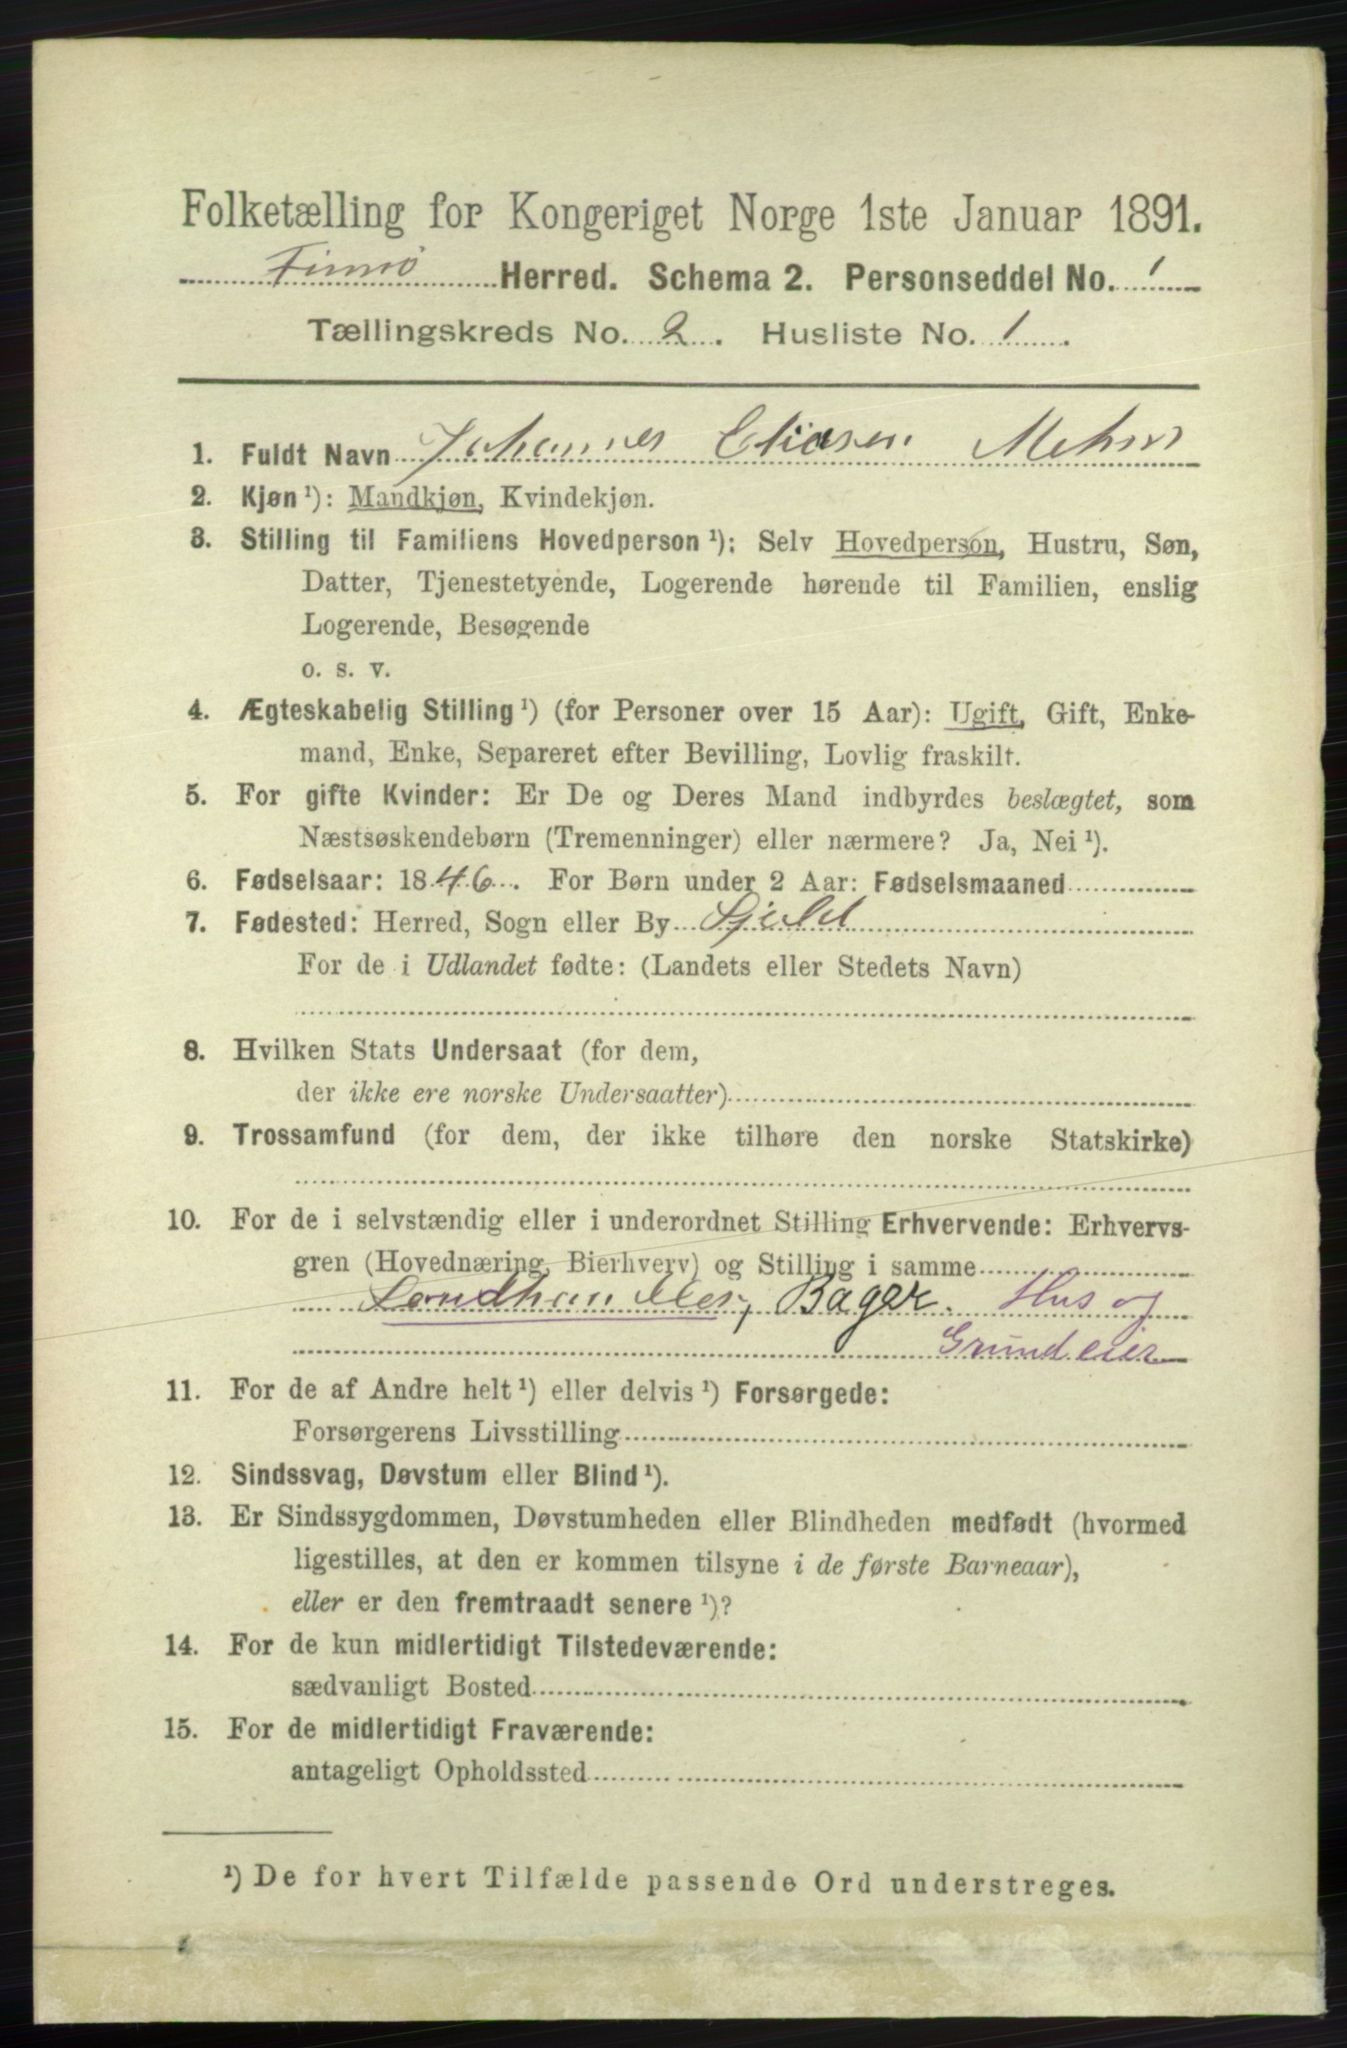 Folketælling for Kongeriget Norge 1ste Januar 1891.
Finnø Herred. Schema 2. Personseddel No. 1
Tællingskreds No. 2. Husliste No. 1.
1. Fuldt Navn Johannes Eliasen
2. Kjøn¹): Mandkjøn, Kvindekjøn.
3. Stilling til Familiens Hovedperson¹): Selv Hovedperson, Hustru, Søn,
Datter, Tjenestetyende, Logerende hørende til Familien, enslig
Logerende, Besøgende
o. s. v.
4. Ægteskabelig Stilling¹) (for Personer over 15 Aar): Ugift, Gift, Enke-
mand, Enke, Separeret efter Bevilling, Lovlig fraskilt.
5. For gifte Kvinder: Er De og Deres Mand indbyrdes beslægtet, som
Næstsøskendebørn (Tremenninger) eller nærmere? Ja, Nei¹).
6. Fødselsaar: 1846. For Børn under 2 Aar: Fødselsmaaned
7. Fødested: Herred, Sogn eller By
For de i Udlandet fødte: (Landets eller Stedets Navn)
8. Hvilken Stats Undersaat (for dem,
der ikke ere norske Undersaatter)
9. Trossamfund (for dem, der ikke tilhøre den norske Statskirke)
10. For de i selvstændig eller i underordnet Stilling Erhvervende: Erhvervs-
gren (Hovednæring, Bierhverv) og Stilling i samme
Landhandler, Bager. Hus og
Grundeier
11. For de af Andre helt¹) eller delvis¹) Forsørgede:
Forsørgerens Livsstilling
12. Sindssvag, Døvstum eller Blind¹).
13. Er Sindssygdommen, Døvstumheden eller Blindheden medfødt (hvormed
ligestilles, at den er kommen tilsyne i de første Barneaar),
eller er den fremtraadt senere¹)?
14. For de kun midlertidigt Tilstedeværende:
sædvanligt Bosted
15. For de midlertidigt Fraværende:
antageligt Opholdssted
¹) De for hvert Tilfælde passende Ord understreges.